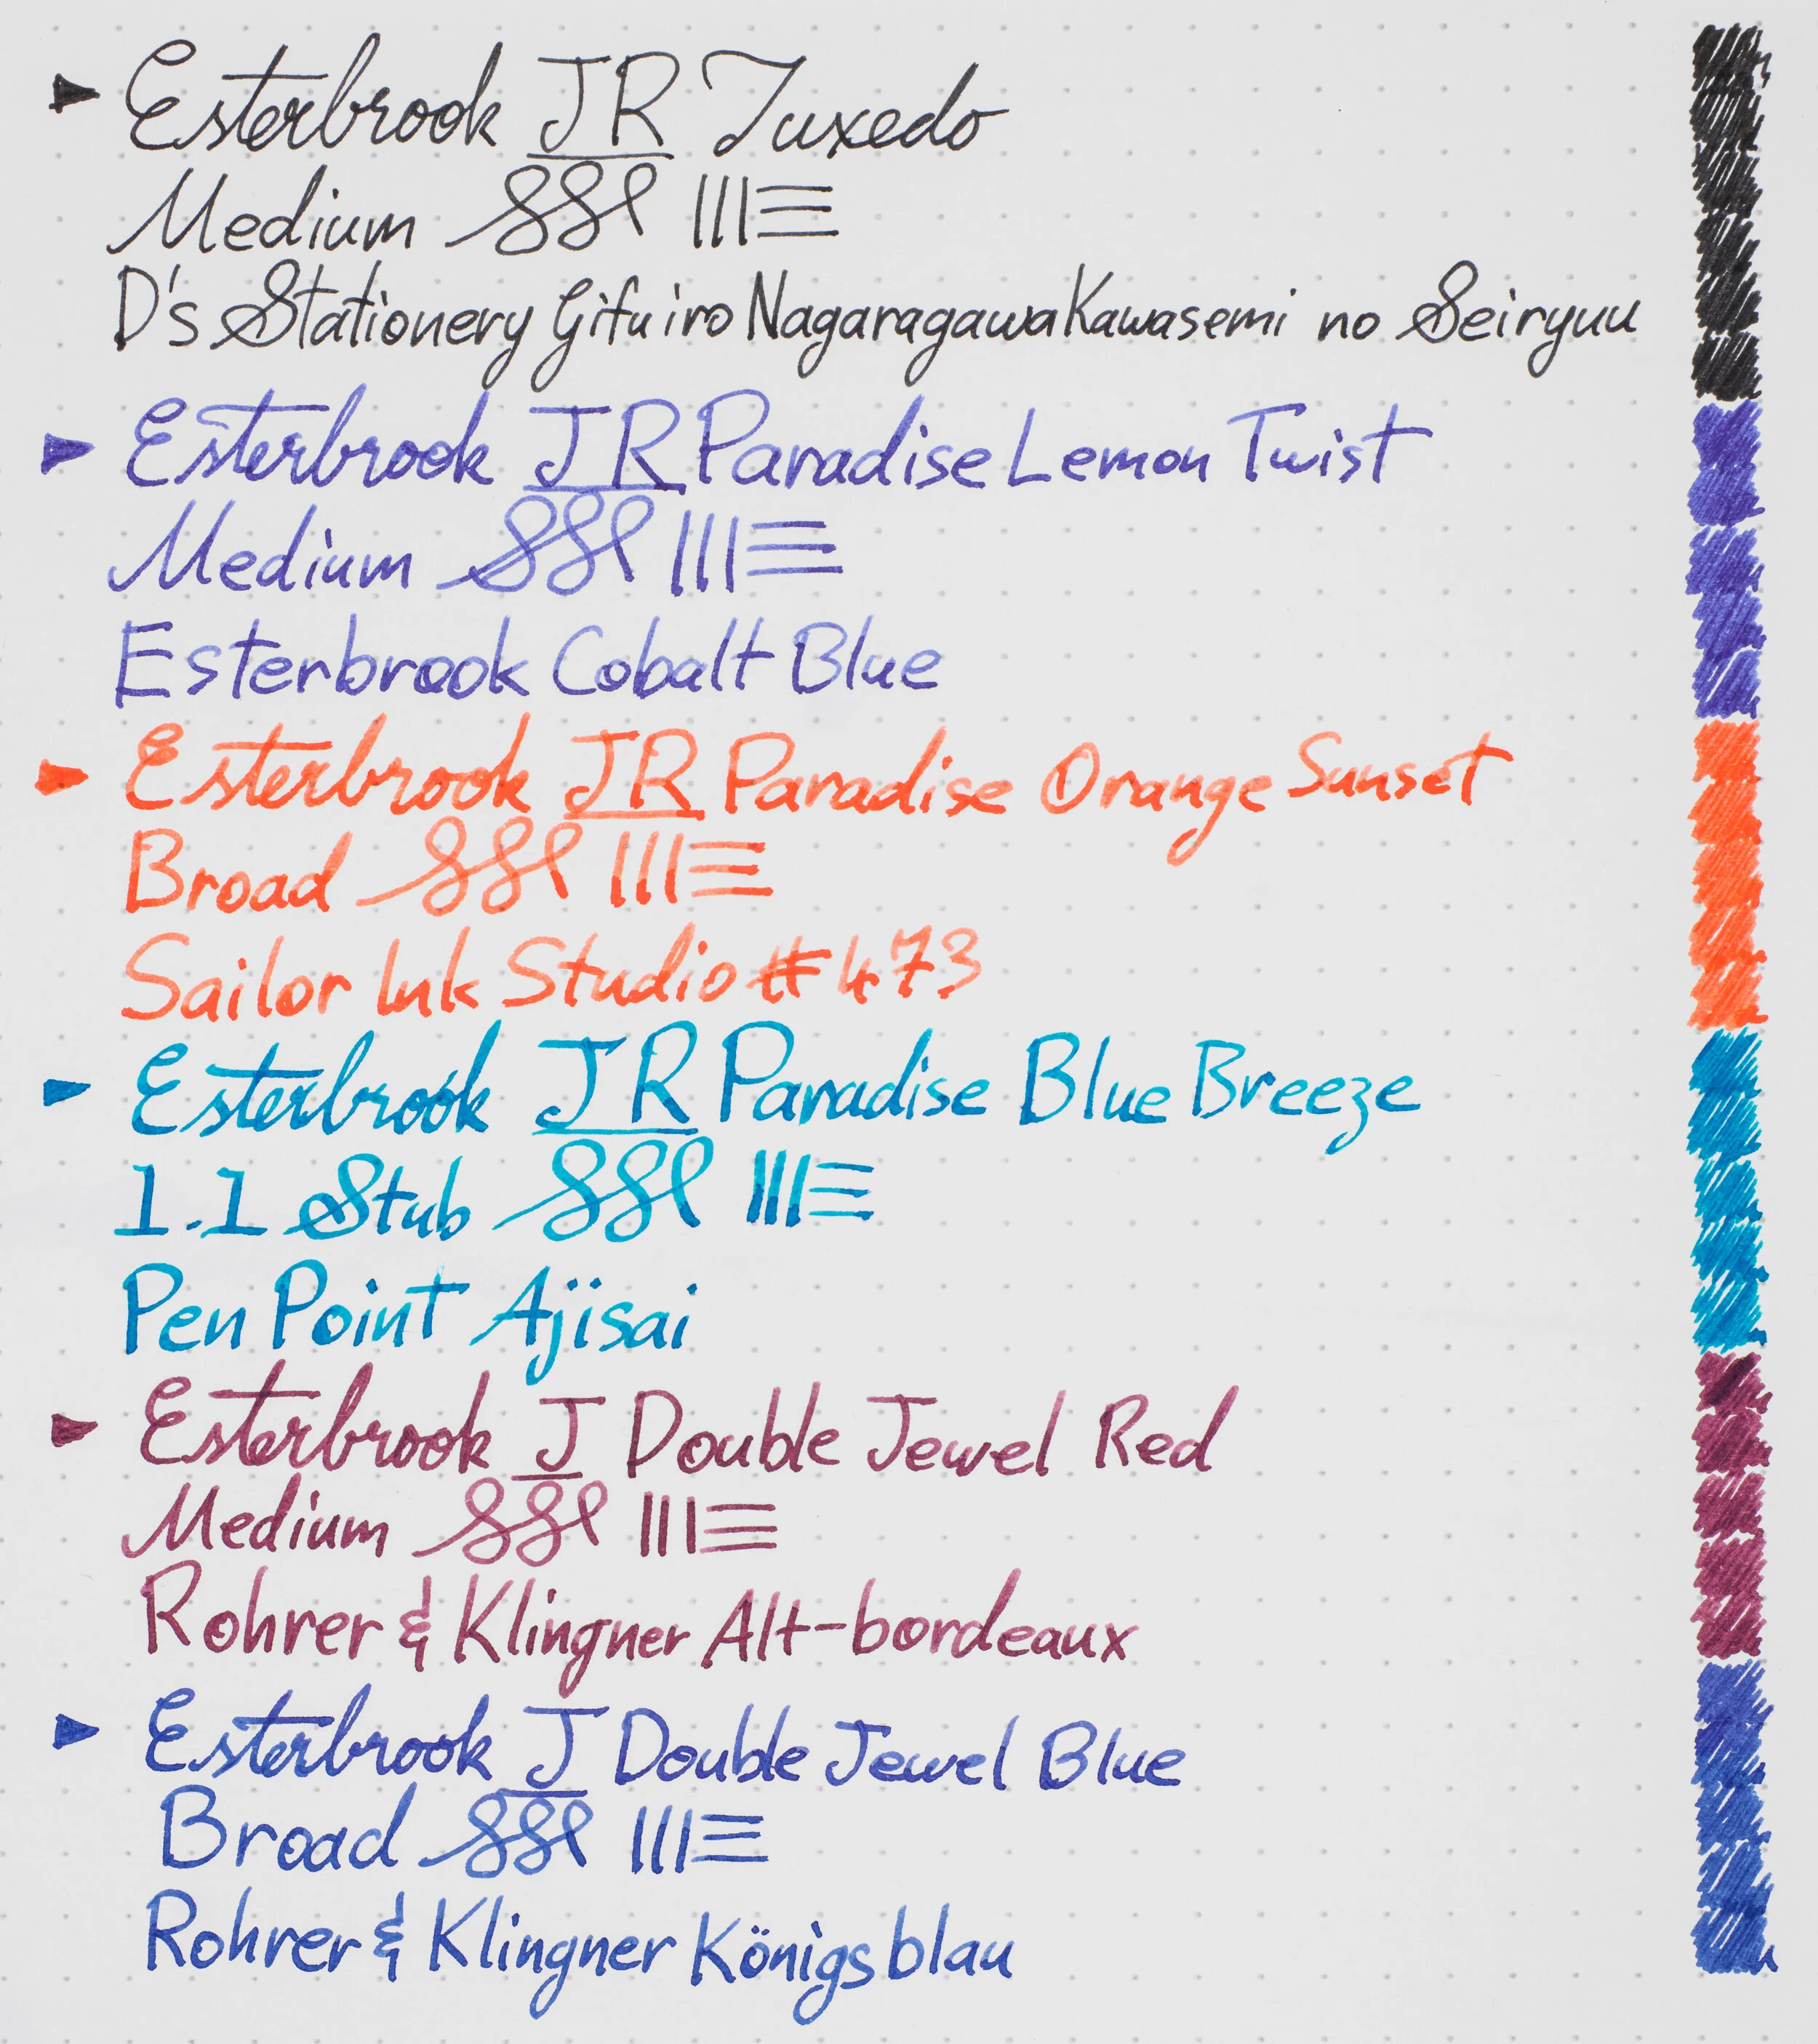 Esterbrook JR Tuxedo
Medium
D's Stationery Gifu iro Nagaragawa Kawasemi no Seiryuu
Esterbrook JR Paradise Lemon Twist
Medium
Esterbrook Cobalt Blue
Esterbrook JR Paradise Orange Sunset
Broad
Sailor Ink Studio #473
Esterbrook JR Paradise Blue Breeze
1.1 Stub
Pen Point Ajisai
Esterbrook J Double Jewel Red
Medium
Rohrer & Klingner Alt-bordeaux
Esterbrook J Double Jewel Blue
Broad
Rohrer & Klingner Königsblau